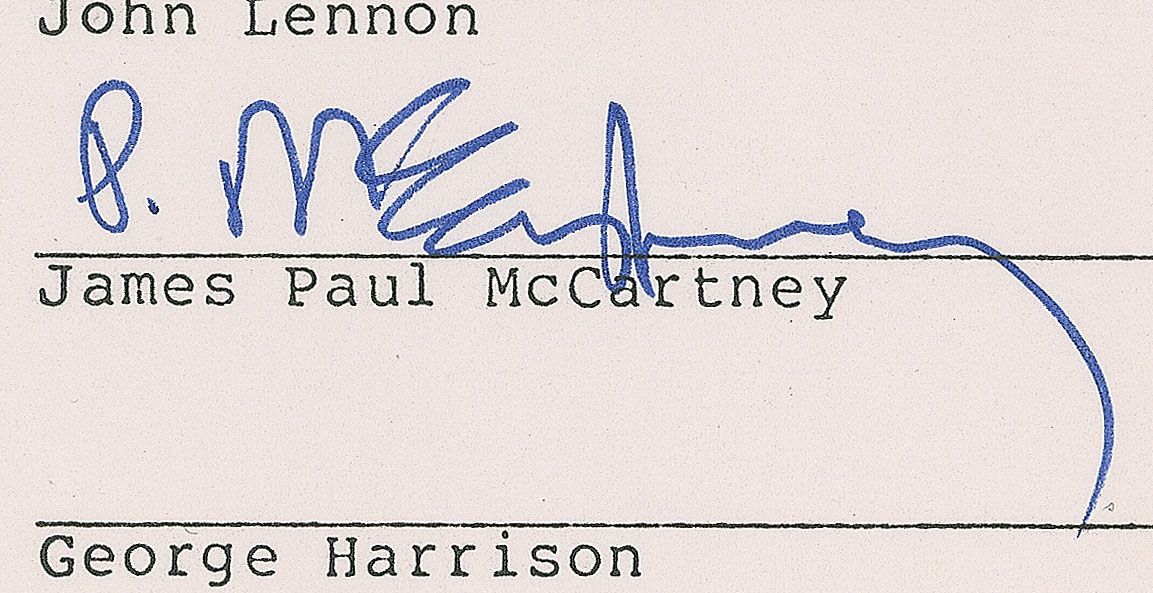 John Lennon
P. McCartney
James Paul McCartney
George Harrison